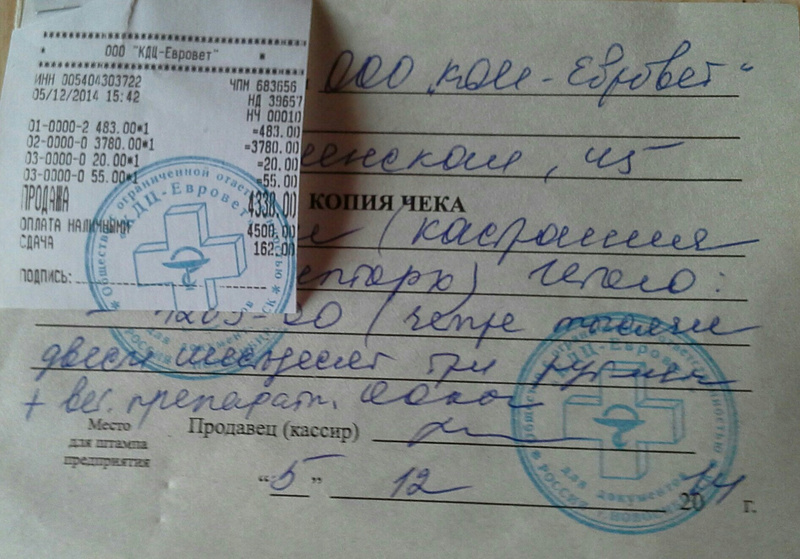 ООО "КДЦ-Евровет"
ИНН 005404303722 ЧПН 683656
05/12/2014 15:42 НД 39657
НЧ 00010
01-0000-2 483.00*1 =483.00
02-0000-0 3780.00*1 =3780.00
03-0000-0 20.00*1 =20.00
03-0000-0 55.00*1 =55.00
ПРОДАЖА 4338.00
ОПЛАТА НАЛИЧНЫМИ 4500.00
СДАЧА 162.00
ПОДПИСЬ:
Общество с ограниченной ответственностью
"КДЦ-Евровет"
для документов
ООО "КДЦ-Евровет"
КОПИЯ ЧЕКА
(кастрация
двести шестьдесят три рубля
+ вет. препарат.
Продавец (кассир)
Место
для штампа
предприятия
"5" 12 2014 г.
КДЦ-Евровет
для документов
РОССИЯ